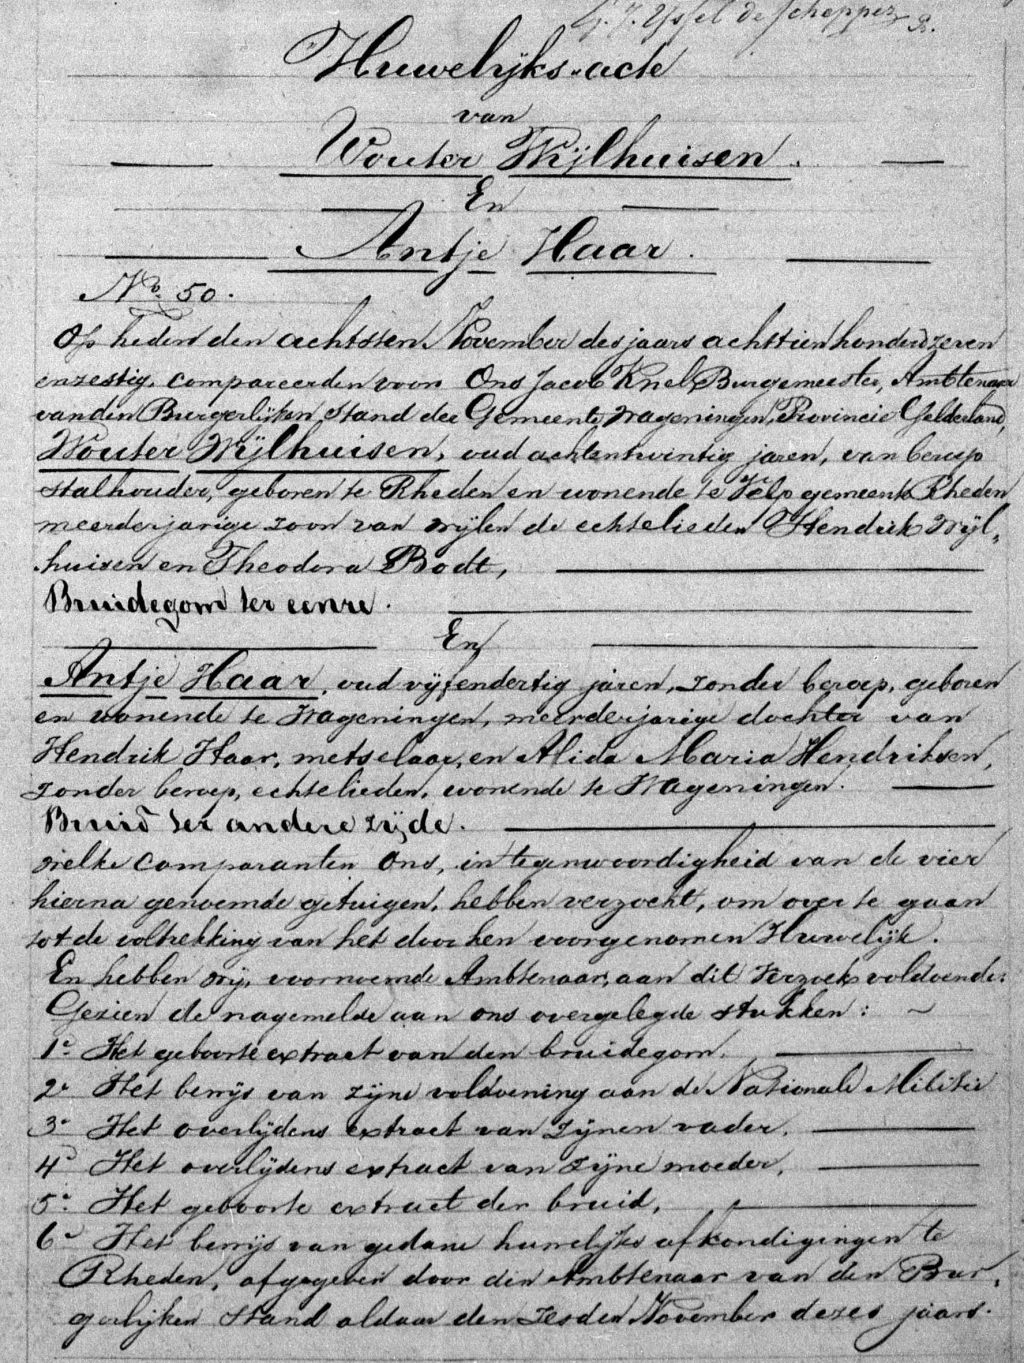 G. J. Yssel de Schepper R.
Huwelijks-acte
van
Wouter Wijlhuisen.
En
Antje Haar.
No. 50.
Op heden den achtsten November des jaars achttienhonderd zeven
enzestig, compareerden voor Ons Jacob Knel, Burgemeester, Ambtenaar
van den Burgerlijken Stand der Gemeente Wageningen, Provincie Gelderland,
Wouter Wijlhuisen, oud achtentwintig jaren, van beroep
stalhouder, geboren te Rheden en wonende te Velp gemeente Rheden
meerderjarige zoon van wijlen de echtelieden Hendrik Wijl-
huisen en Theodora Bodt,
Bruidegom ter eenre.
En
Antje Haar, oud vijfendertig jaren, zonder beroep, geboren
en wonende te Wageningen, meerderjarige dochter van
Hendrik Haar, metselaar, en Alida Maria Hendriksen,
zonder beroep, echtelieden, wonende te Wageningen.
Bruid ter andere zijde.
Welke comparanten Ons, in tegenwoordigheid van de vier
hierna genoemde getuigen, hebben verzocht, om over te gaan
tot de voltrekking van het door hen voorgenomen Huwelijk.
En hebben wij, voornoemde Ambtenaar, aan dit verzoek voldoende:
Gezien de nagemelde aan ons overgelegde stukken: ~
1e Het geboorte extract van den bruidegom.
2e Het bewijs van zijne voldoening aan de Nationale Militie
3e Het overlijdens extract van zijnen vader,
4e Het overlijdens extract van zijne moeder,
5e Het geboorte extract der bruid,
6e Het bewijs van gedane huwelijks afkondigingen te
Rheden, afgegeven door den Ambtenaar van den Bur-
gerlijken Stand aldaar den zesden November dezes jaars.